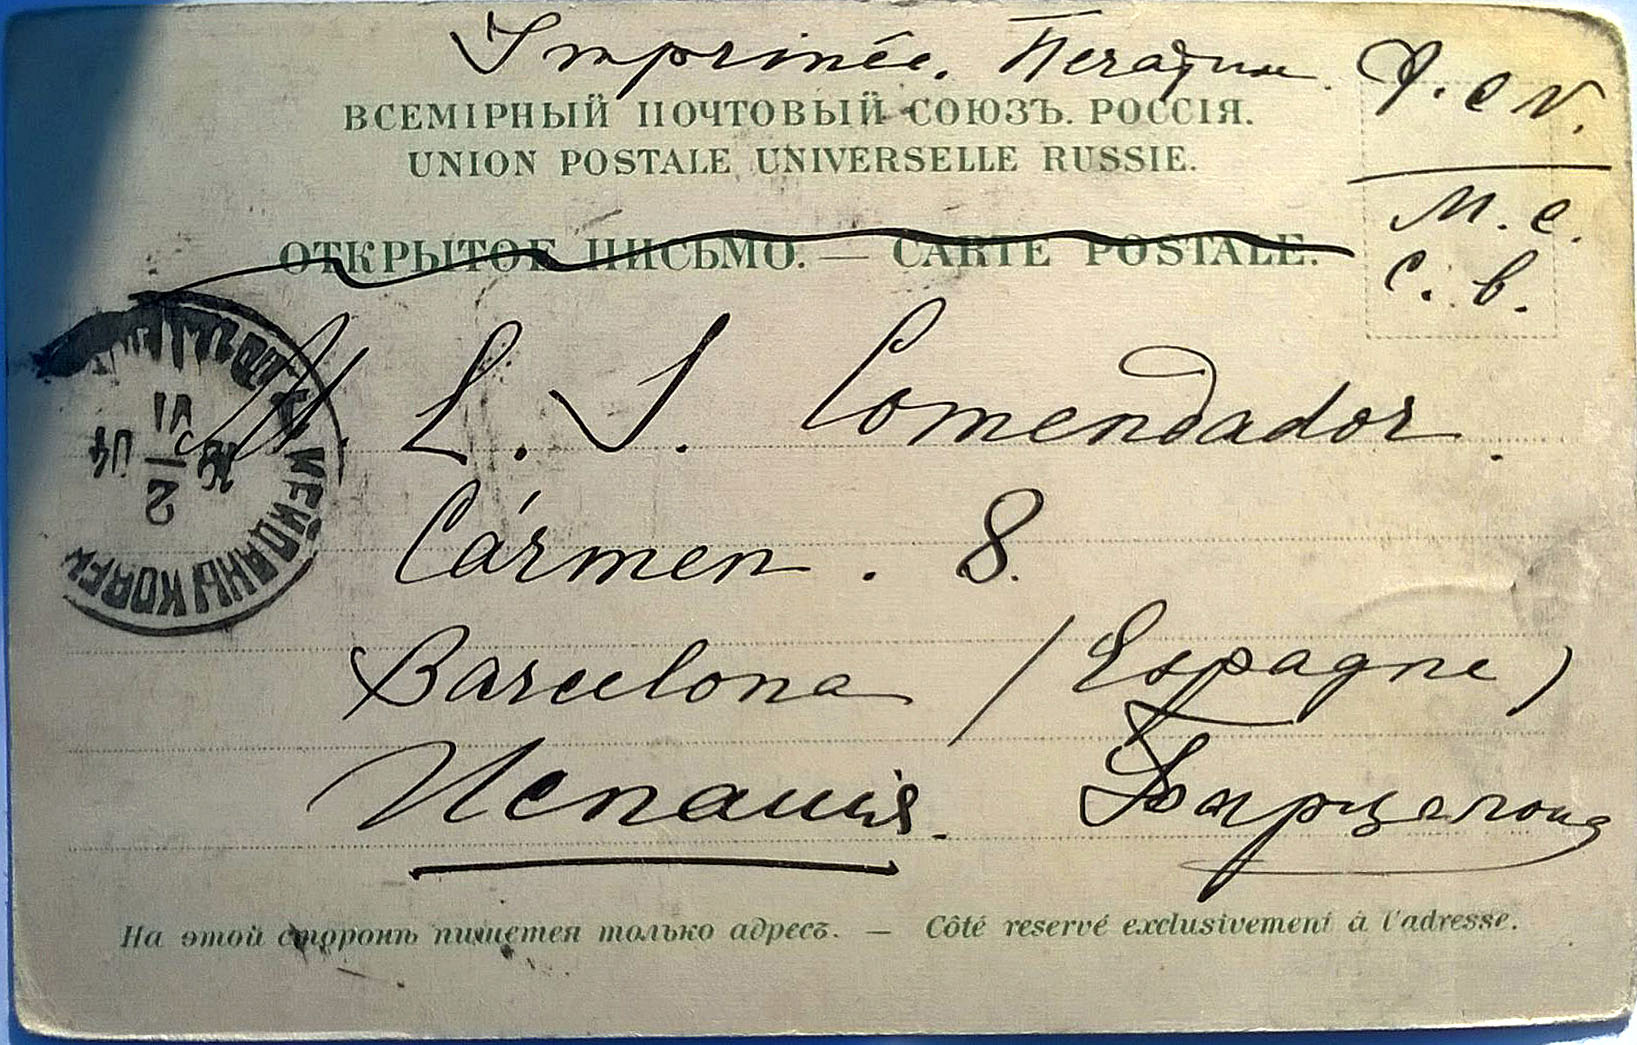 Imprinée. Печатн.
ВСЕМІРНЫЙ ПОЧТОВЫЙ СОЮЗЪ. РОССІЯ.
UNION POSTALE UNIVERSELLE RUSSIE.
М. С.
С. В.
ОТКРЫТОЕ ПИСЬМО. — CARTE POSTALE.
M. L. S. Comendador.
Cármen. 8.
Barcelona (Espagne)
Испанія. Барцелона
КЕЙДАНЫ КОВЕН.
На этой сторонѣ пишется только адресъ. — Côté reservé exclusivement à l'adresse.